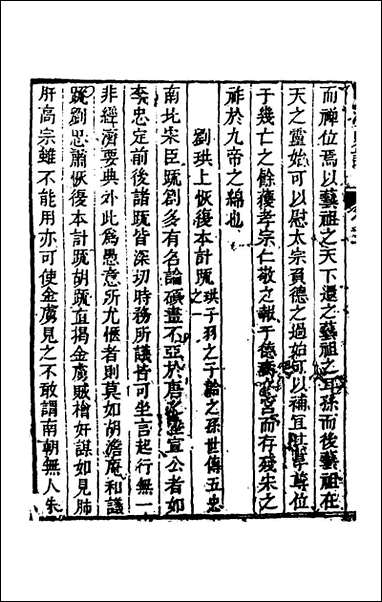 而禪位焉以藝祖之天下還之藝祖之耳孫而後藝祖在
天之靈始可以慰太宗負德之過始可以補且尊位
于幾亡之餘獲孝宗仁敬之報于德壽宮而存殘宋之
祚於九帝之綿也
劉珙上恢復本計䟽 珙子羽之子韐之孫世傳五忠之一
南北宋臣䟽劄多有名論碩畫不亞於唐之宣公者如
李忠定前後諸䟽皆深切時務所議皆可坐言起行無一
非經濟要典外此爲愚意所尤愜者則莫如胡澹庵和議
䟽劉思肅恢復本計䟽胡䟽直揭金虜賊檜奸謀如見肺
肝高宗雖不能用亦可使金虜見之不敢謂南朝無人朱